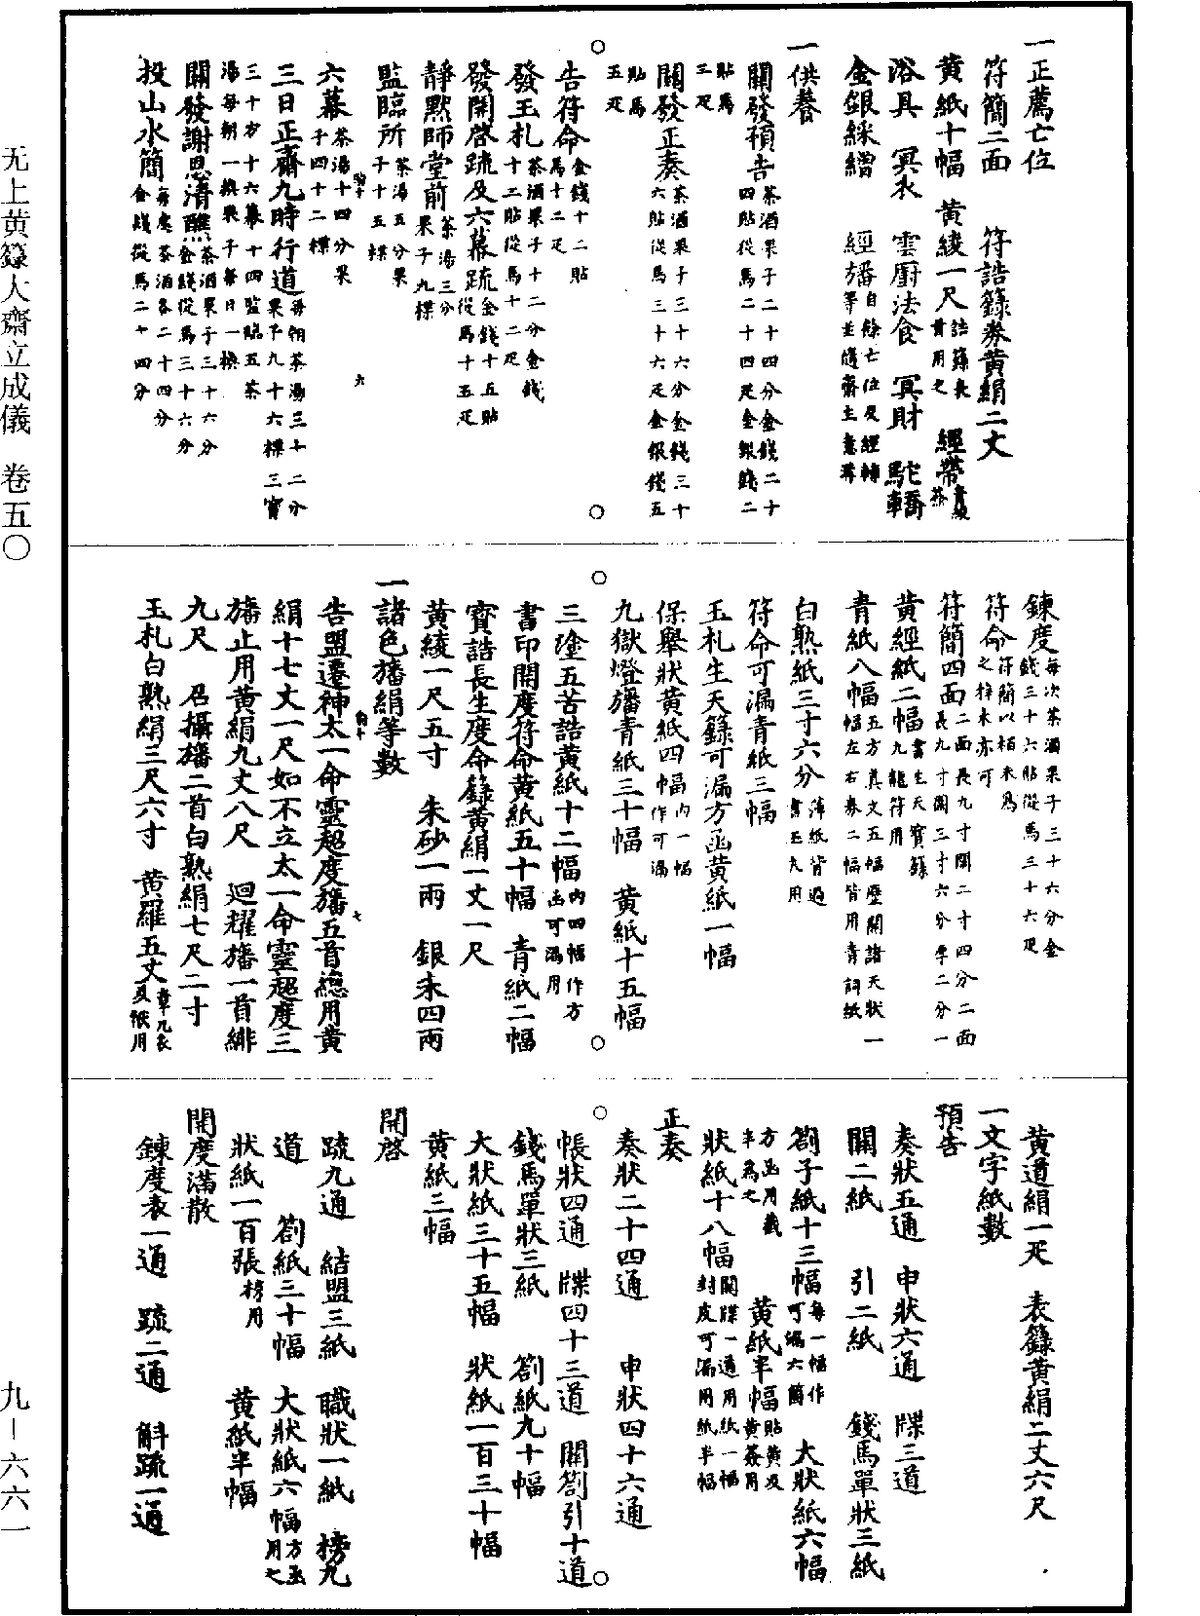 一正薦亡位
符簡二面　符誥籙券黃絹二丈
黃紙十幅　黃綾一尺誥籙表黃用之　經帶青綾
浴具　冥衣　雲廚法食　冥財　馳轎
金銀綵繒　經旛自餘亡位度經轉等並隨齋主意
一供養
關發預告茶酒果子二十四分金錢二十四貼從馬二十四疋金銀錢二
貼馬三疋
關發正奏茶酒果子三十六分金錢三十六貼從馬三十六疋金銀錢五
貼馬五疋
告符命金錢十二貼馬十二疋
發玉札茶酒果子十二分金錢十二貼從馬十二疋
發開啓疏及六幕疏金錢十五貼從馬十五疋
靜默師堂前茶湯三分果子九楪
監臨所茶湯五分果子十五楪
六幕茶湯十四分果子四十二楪
三日正齋九時行道每朝茶湯三十二分果子九十六楪三寶
三十方十六幕十四監臨五茶湯每朝一換果子每日一換
關發謝恩清醮茶酒果子三十六分金錢從馬三十六分
投山水簡每處茶酒各二十四分金錢從馬二十四分
鍊度每次茶酒果子三十六分金錢三十六貼從馬三十六疋
符命符簡以栢木爲之梓木亦可
符簡四面二面長九寸闊二寸四分二面長九寸闊三寸六分厚二分一
黃經紙二幅書生天寶籙九龍符用
青紙八幅五方真文五幅歷關諸天狀一幅左右券二幅皆用青詞紙
白熟紙三寸六分薄紙皆過書玉札用
符命可漏青紙三幅
玉札生天籙可漏方函黃紙一幅
保舉狀黃紙四幅內一幅作可漏
九獄燈旛青紙三十幅　黃紙十五幅
三塗五苦誥黃紙十二幅內四幅作方函可漏用
書印開度符命黃紙五十幅　青紙二幅
寶誥長生度命籙黃絹一丈一尺
黃綾一尺五寸　朱砂一兩　銀朱四兩
一諸色旛絹等數
告盟遷神太一命靈超度旛五首總用黃
絹十七丈一尺如不立太一命靈超度三
旛止用黃絹九丈八尺　迴耀旛一首緋
九尺　召攝旛二首白熟絹七尺二寸
玉札白熟絹三尺六寸　黃羅五丈章几衣及帨用
黃道絹一疋　表籙黃絹二丈六尺
一文字紙數
預告
奏狀五通　申狀六通　牒三道
關二紙　引二紙　錢馬單狀三紙
劄子紙十三幅每一幅作可漏六箇　大狀紙六幅
方函用截半爲之　黃紙半幅貼黃及黃簽用
狀紙十八幅關牒一通用紙一幅封皮可漏用紙半幅
正奏
奏狀二十四通　申狀四十六通
帳狀四通　牒四十三道　關劄引十道
錢馬單狀三紙　劄紙九十幅
大狀紙三十五幅　狀紙一百三十幅
黃紙三幅
開啓
疏九通　結盟三紙　職狀一紙　榜九
道　劄紙三十幅　大狀紙六幅方函用七
狀紙一百張榜用　黃紙半幅
開度滿散
鍊度表一通　疏二通　斛疏一通
无上黄籙大齋立成儀　卷五〇
九—六六一